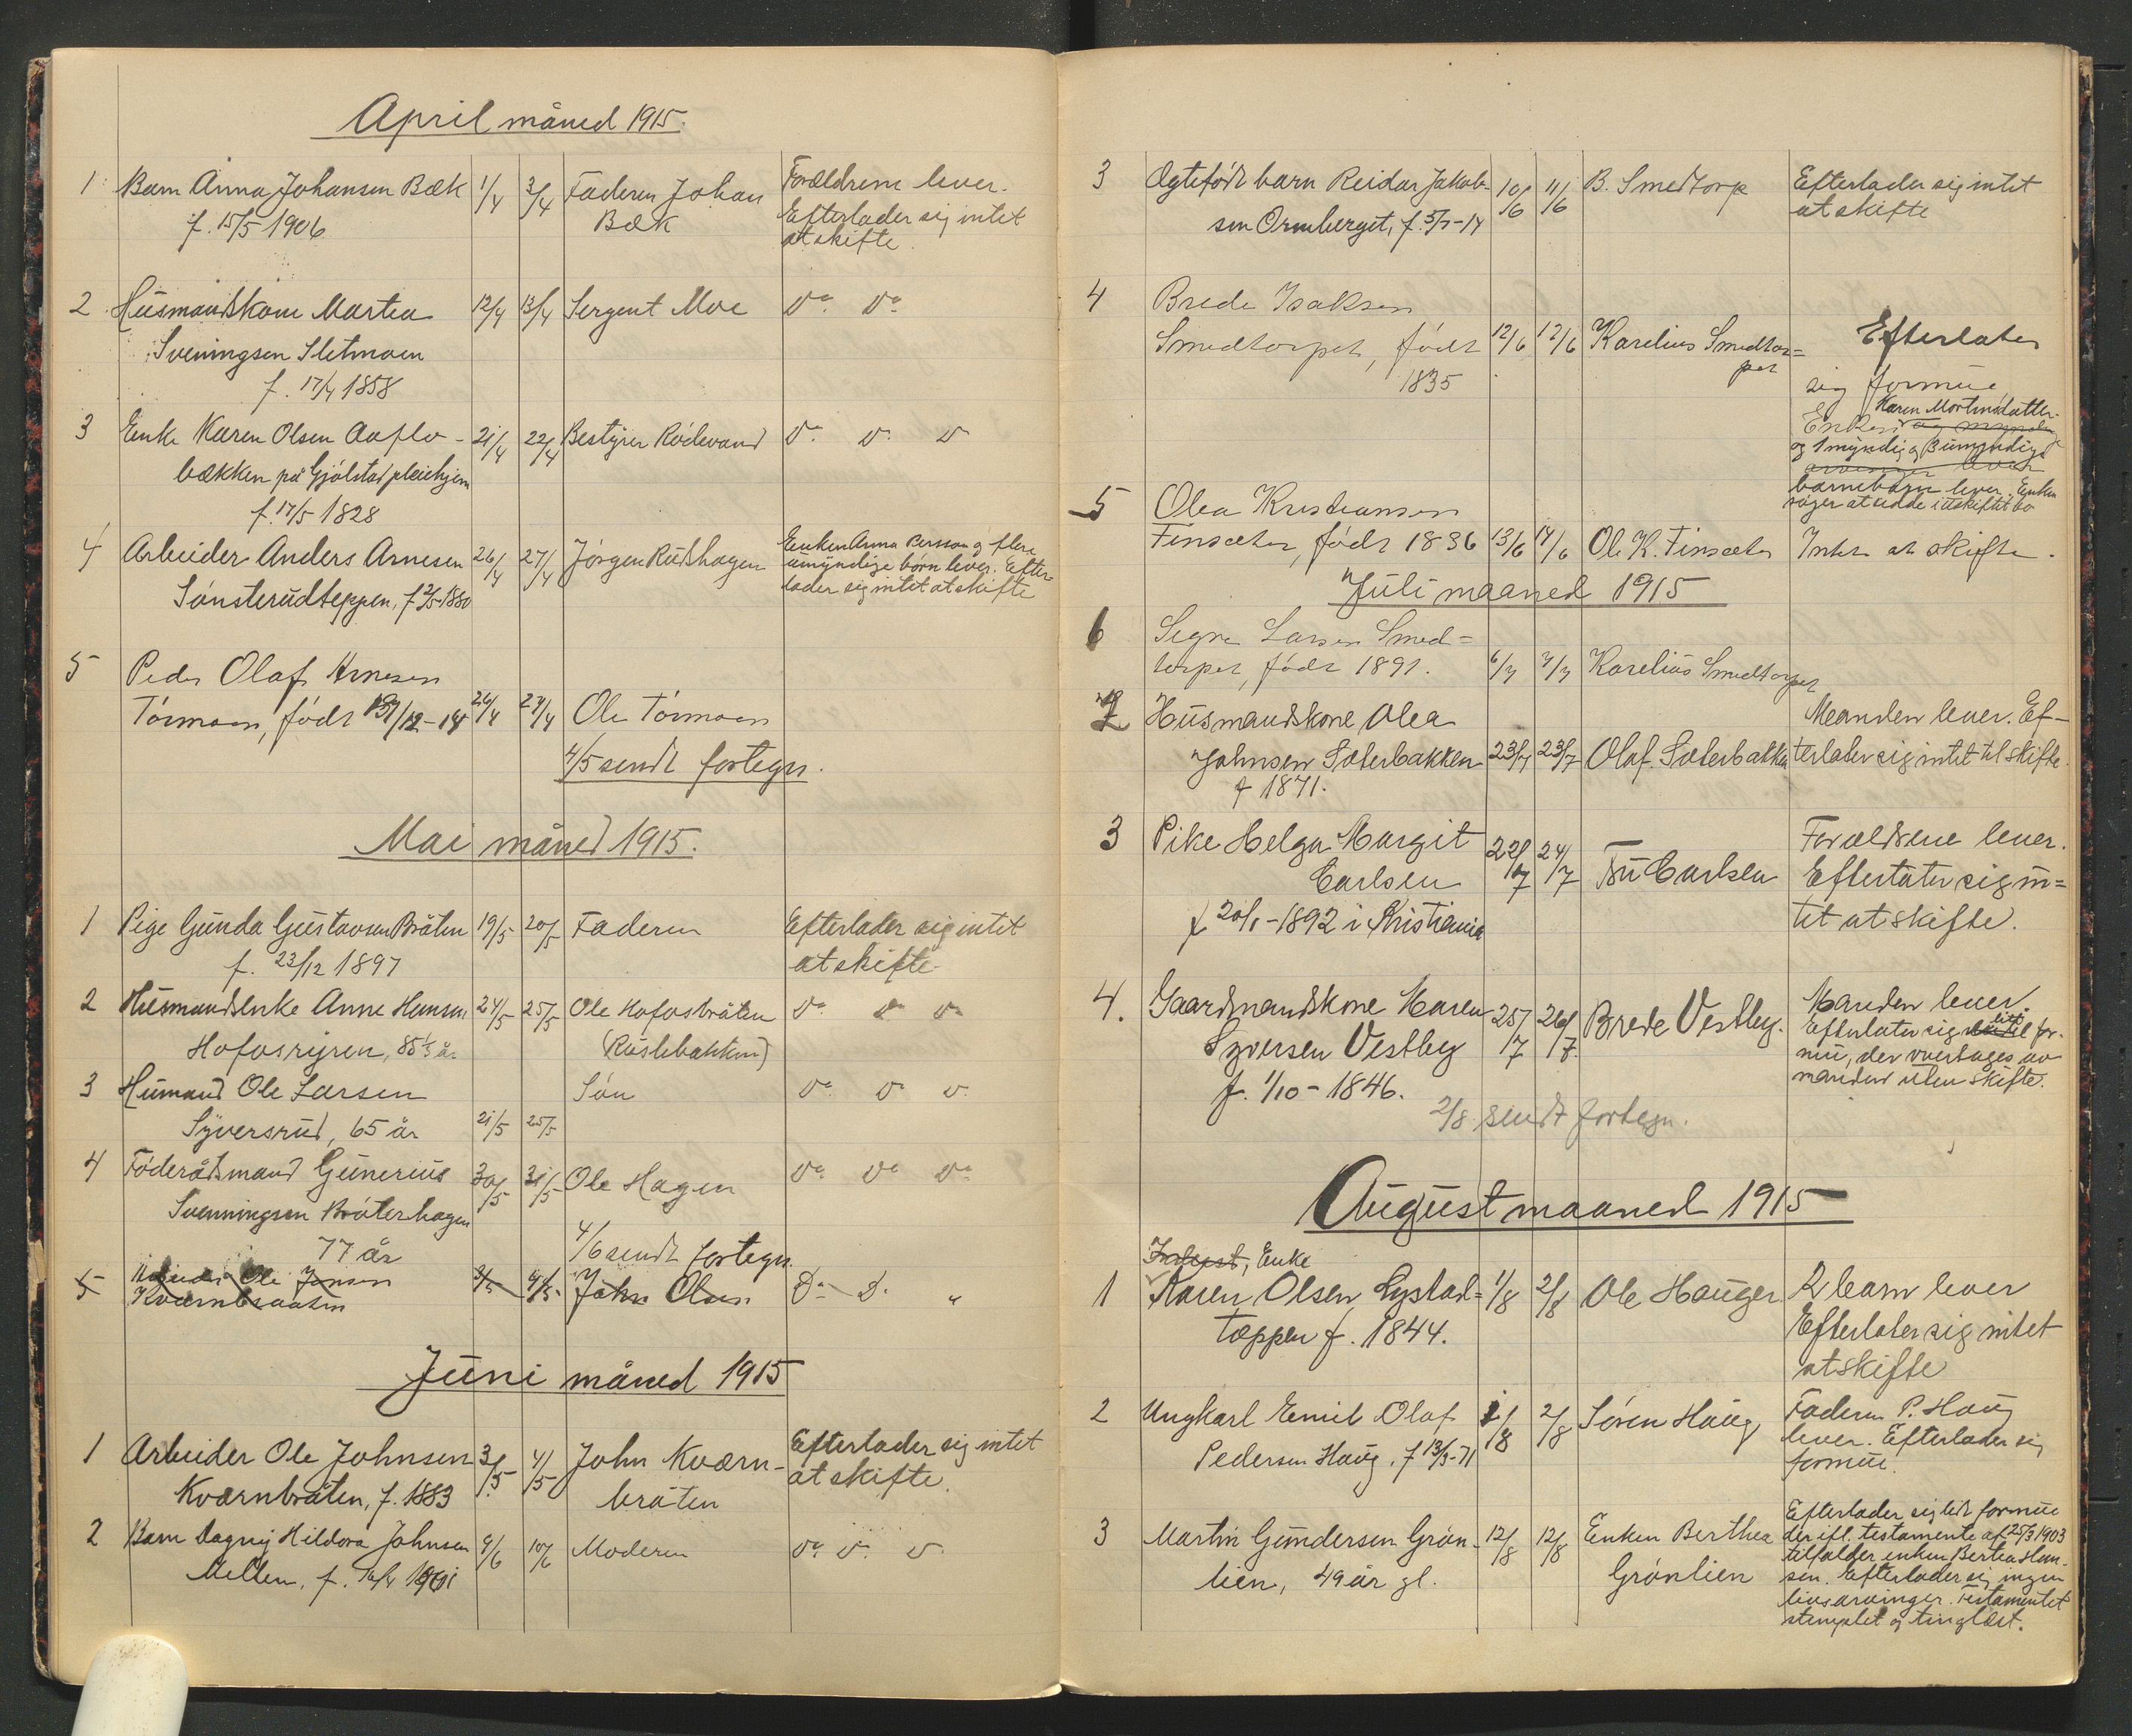 April måned 1915.
1 Barn Anna Johansen Bæk 1/4 3/4 Faderen Johan Forældrene lever.
f. 15/5 1906 Bæk Efterlader sig intet
at skifte.
2 Husmandskone Martea 12/4 13/4 Sergent Moe Do Do
Sveningsen Sletmoen
f. 17/4 1858
3 Enke Karen Olsen 21/4 22/4 Bestyrer Rødevand Do Do Do
bækken på Gjølstad pleiehjem
f. 17/5 1828
4 Arbeider Anders Arnesen 26/4 27/4 Jørgen Rudshagen Enken Anna Persson og flere
Sønsterudteppen, f 2/5-1880 umyndige børn lever. Efter-
lader sig intet at skifte
5 Peder Olaf Arnesen
Tørmoen, født /12-14 26/4 27/4 Ole Tørmoen
4/5 sendt fortegn.
Mai måned 1915.
1 Pige Gunda Gustavsen Bråten 19/5 20/5 Faderen Efterlader sig intet
f. 23/12 1897 at skifte
2 Husmandsenke Anne Hansen 24/5 25/5 Ole Hofosbråten Do Do Do
Hofosryren, 85 1/3 år (Raslebakken)
3 Husmand Ole Larsen Søn Do Do Do
Syversrud, 65 år 21/5 25/5
4 Føderådsmand Gunerius 30/5 31/5 Ole Hagen Do Do Do
Svenningsen Bråterhagen
77 år 4/6 sendt fortegn.
5 Ole Jonsen 3/5 4/5 John Olsen D. D. "
Kværnbraaten
Juni måned 1915
1 Arbeider Ole Johnsen 3/5 4/5 John Kværn- Efterlader sig intet
Kværnbråten, f. 1883 bråten at skifte.
2 Barn Dagny Hildora Johnsen 9/6 10/6 Moderen Do Do Do
Mellem, f. 16/4 1901
3 Ægtefødt barn Reidar Jakob- 10/6 11/6 B. Smedtorp Efterlader sig intet
sen Ormberget, f. 5/7-14 at skifte
4 Brede Isaksen
Smedtorpet, født 12/6 12/6 Karelius Smedtor= Efterlater
1835 pet
sig formue
Karen Mortinsdatter
Enken og
og 1 myndig og 3 umyndige
arvinger lever
barnebarn lever. Enken
søger at sidde i uskiftet bo
5 Olea Kristiansen
Finsæter, født 1836 13/6 14/6 Ole K. Finsæter Intet at skifte.
Juli maaned 1915
6 Signe Larsen Smed=
torpet, født 1891. 6/7 7/7 Karelius Smedtorpet
2 Husmandskone Olea Manden lever. Ef-
Johnsen Sæterbakken 23/7 23/7 Olaf Sæterbakken terlater sig intet til skifte.
f 1871.
3 Pike Helga Margit 22/7 24/7 Fru Carlsen Forældrene lever.
Carlsen Efterlater sig in=
f 20/1-1892 i Kristiania tet at skifte.
4. Gaardmandskone Maren 25/7 26/7 Brede Vestby. Manden lever.
Syversen Vestby Efterlater sig litt for-
f. 1/10-1846. mue, der overtages av
manden uten skifte.
2/8 sendt fortegn.
August maaned 1915
Inderst, Enke
1 Karen Olsen Lystad= 1/8 2/8 Ole Hauger 2 barn lever
tæppen f. 1844. Efterlater sig intet
at skifte
2 Ungkarl Emil Olaf 1/8 2/8 Søren Haug Faderen P. Haug
Pedersen Haug, f 13/3-71 lever. Efterlader sig
formue.
3 Martin Gundersen Grøn- 12/8 12/8 Enken Berthea Efterlader sig lidt formue
lien, 49 år gl. Grønlien der ifl. testamente af 25/3 1903
tilfalder enken Bertea Han-
sen. Efterlader sig ingen
livsarvinger. Testamentet
stemplet og tinglæst.